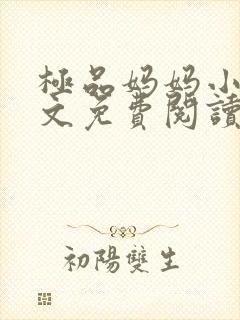 極品妈妈小
文免費閱讀
初陽雙生